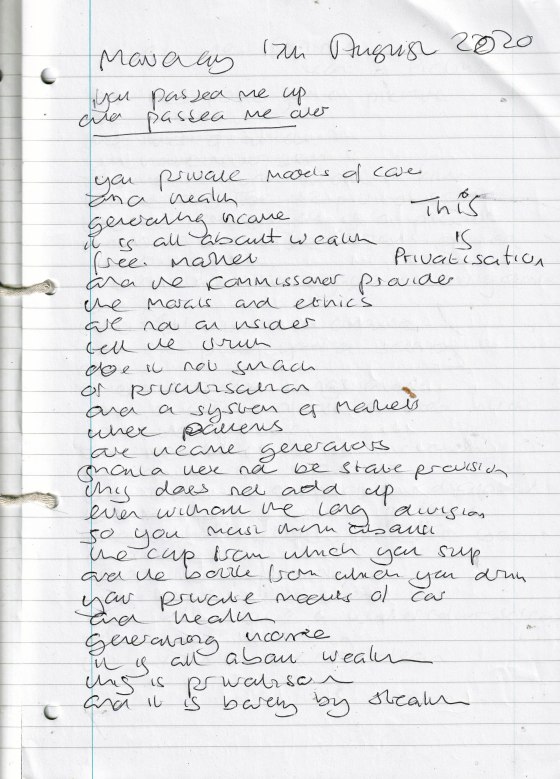 Monday 17th August 2020
you passed me up
and passed me over
your private models of care
and health
generating income
it is all about wealth
free market
and the commissioner provider
the morals and ethics
are not an insider
tell the truth
does it not smack
of privatisation
and a system of markets
where patients
are income generators
should there not be state provision
this does not add up
even without the long division
so you must think about
the cup from which you sup
and the bottle from which you drink
your private models of care
and health
generating income
it is all about wealth
this is privatisation
and it is barely by stealth
This
is
Privatisation